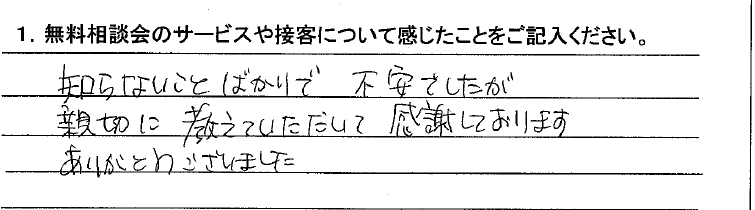 1. 無料相談会のサービスや接客について感じたことをご記入ください。
知らないことばかりで 不安でしたが
親切に 教えていただいて 感謝しております
ありがとうございました